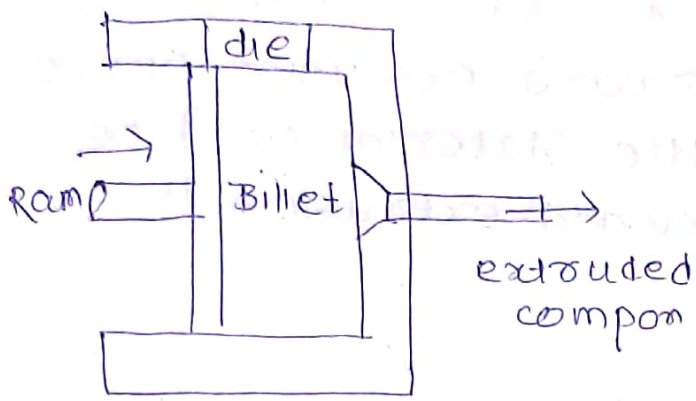 die
Ram
Billet
extruded
compon